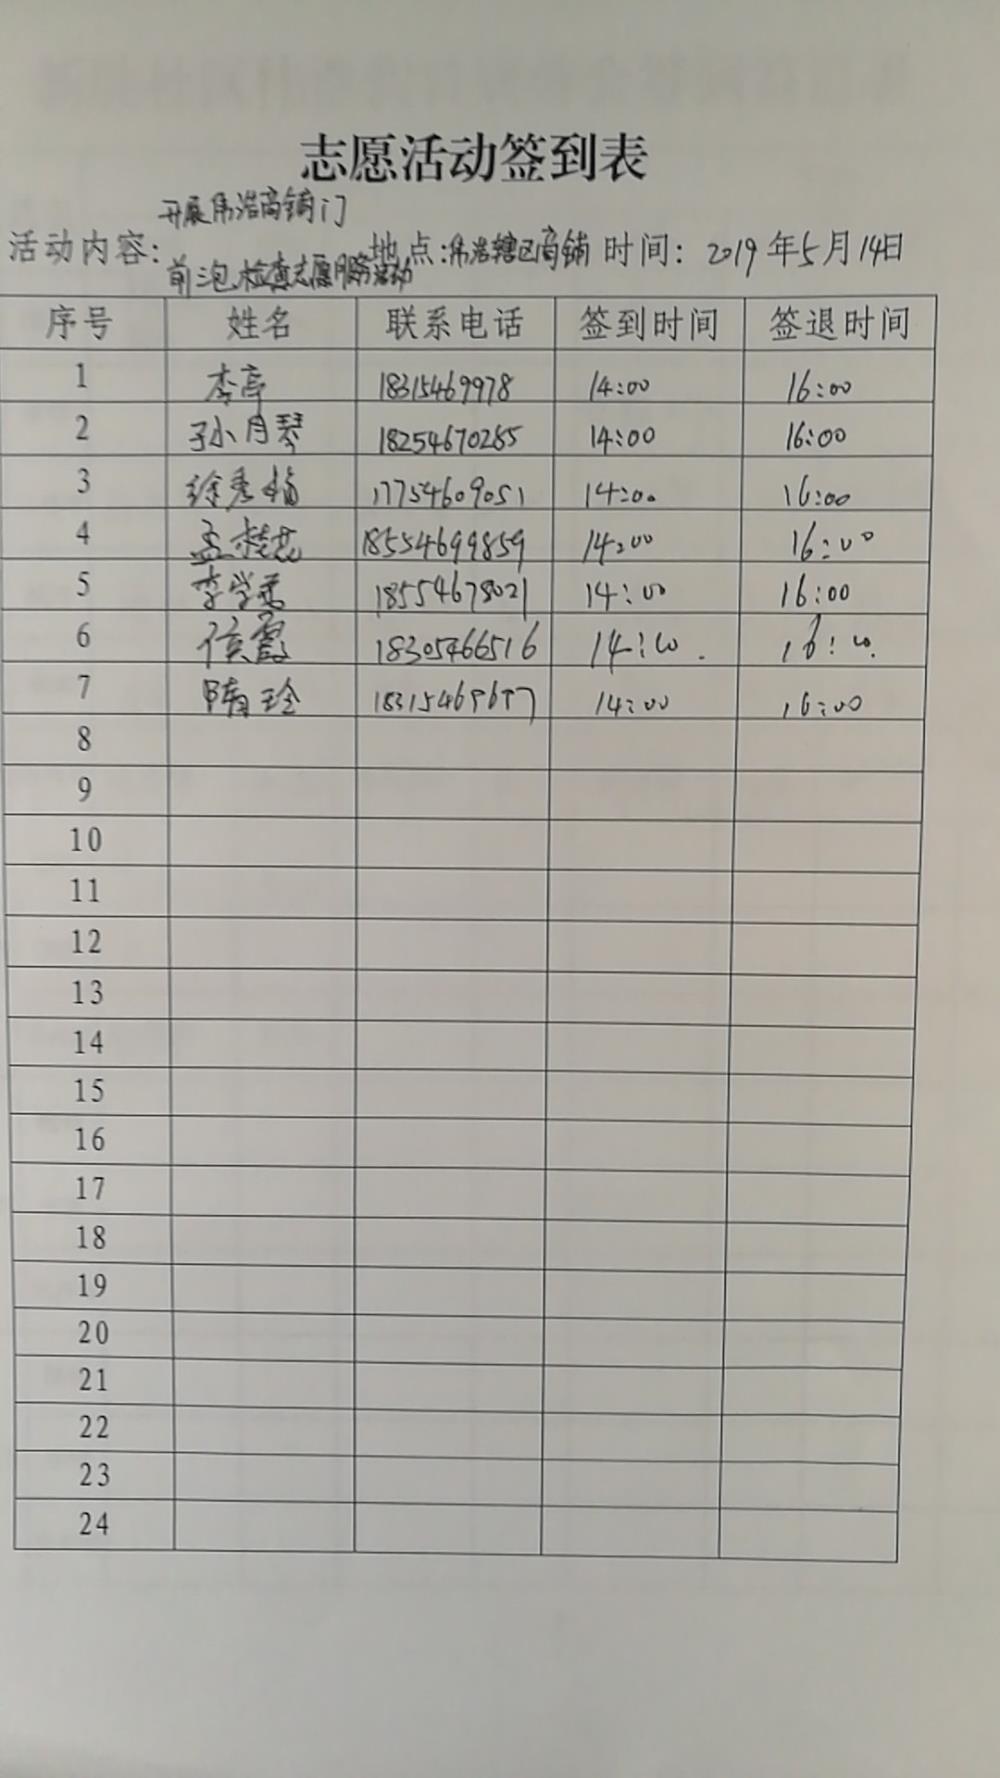 志愿活动签到表
开展伟浩商铺门
活动内容: 地点:伟浩辖区商铺 时间: 2019年5月14日
前三包,检查志愿服务活动
序号 姓名 联系电话 签到时间 签退时间
1 李亭 18315469978 14:00 16:00
2 孙月琴 18254670285 14:00 16:00
3 徐秀梅 17754609051 14:00 16:00
4 孟桂花 18554699859 14:00 16:00
5 李学香 18554678021 14:00 16:00
6 侯霞 18305466516 14:00 16:00
7 隋玲 14:00 16:00
8
9
10
11
12
13
14
15
16
17
18
19
20
21
22
23
24